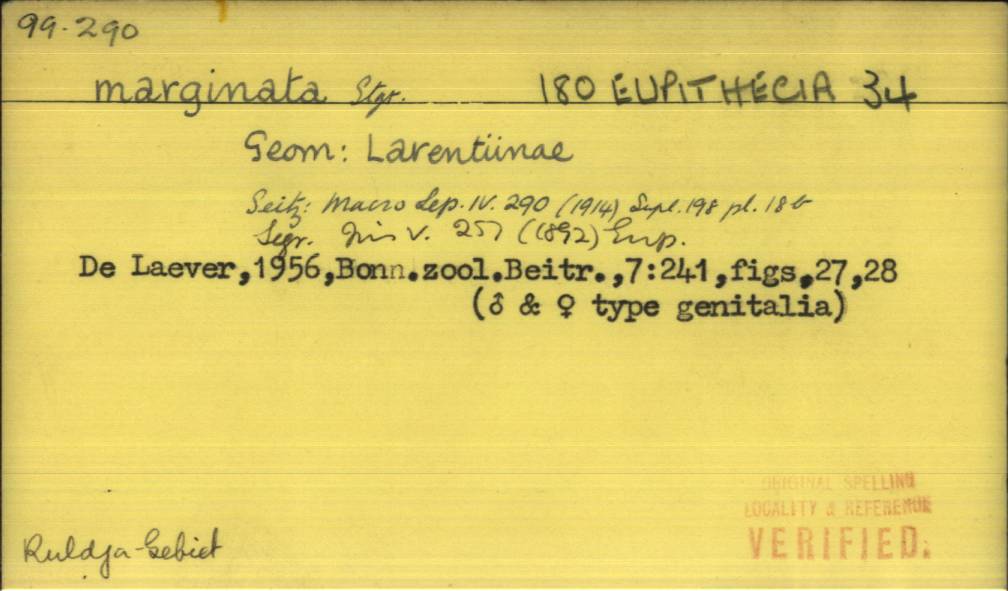 99.290
marginata Stgr. 180 EUPITHECIA 34
Geom: Larentiinae
Seitz: Macro Lep. IV. 290 (1914) Supl. 198 pl. 18 b
Stgr. Iris V. 257 (1892) Eup.
De Laever,1956,Bonn.zool.Beitr.,7:241,figs.27,28
(♂ & ♀ type genitalia)
ORIGINAL SPELLING
LOCALITY & REFERENCE
VERIFIED.
Kuldja-Gebiet